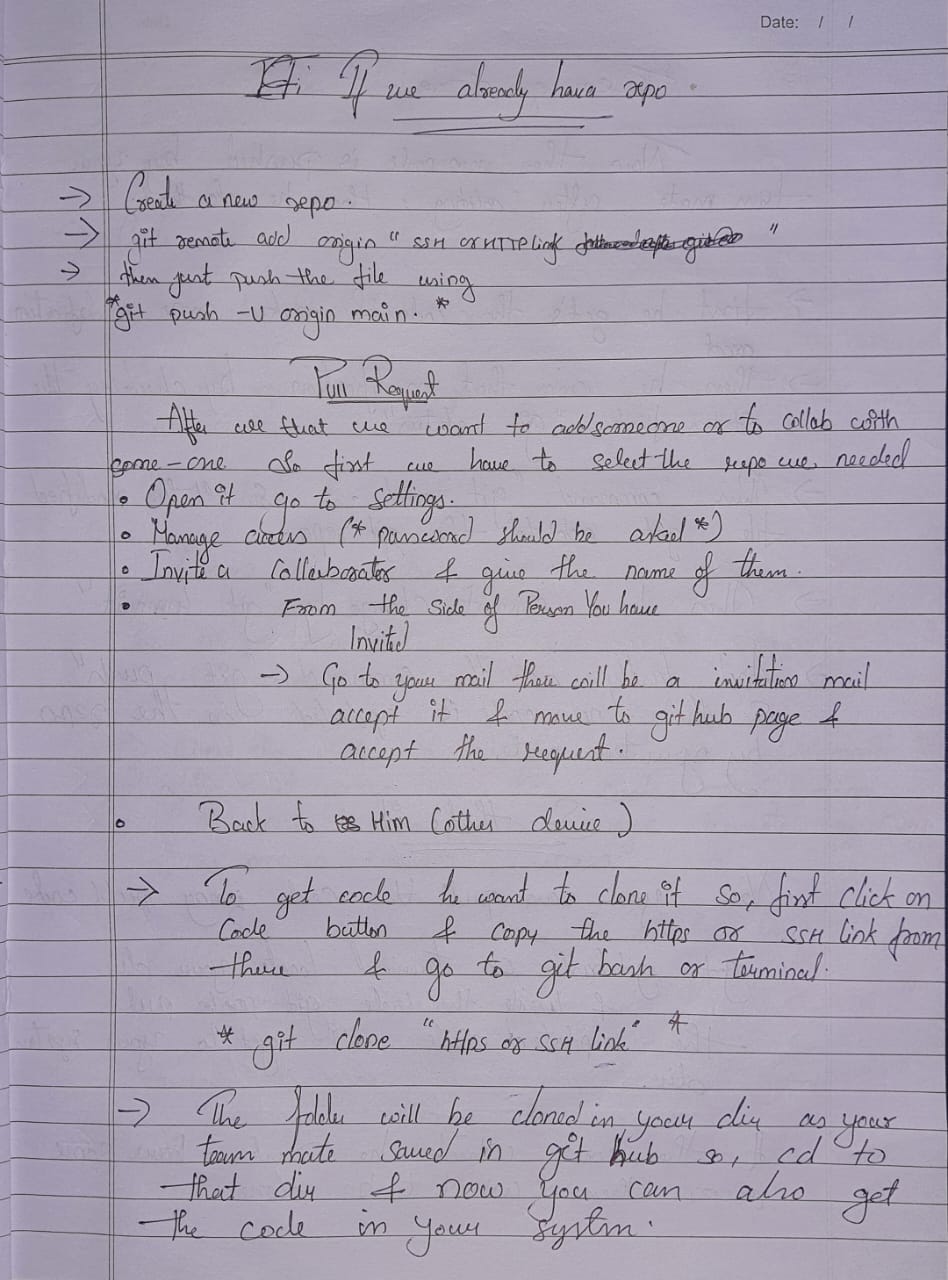 Date: / /
If we already have repo
→ Create a new repo.
→ git remote add origin " SSH or HTTP link "
→ then just push the file using
*git push -U origin main. *
Pull Request
After all that we want to add someone or to collab with
some-one So first we have to select the repo we needed
• Open it go to settings.
• Manage access (* password should be asked *)
• Invite a Collaborator & give the name of them.
• From the side of Person You have
Invited
→ Go to your mail there will be a invitation mail
accept it & move to git hub page &
accept the request.
• Back to Him (other device)
→ To get code he want to clone it so, first click on
Code button & copy the https or SSH link from
there & go to git bash or terminal.
* git clone "https or SSH link" *
→ The folder will be cloned in your dir as your
team mate saved in git hub so, cd to
that dir & now you can also get
the code in your system.